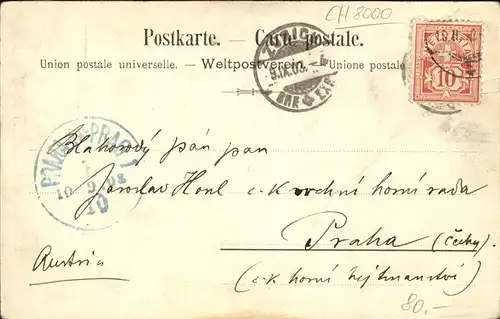 CH 8000
Postkarte. – Carte postale.
Union postale universelle. – Weltpostverein. – Unione postale
9.IX.03.
10
Blahorodý pán pan
Jaroslav Horel c.k. vrchní horní rada
Praha (Čechy)
Austria
(c.k. horní hejtmanství)
80.-